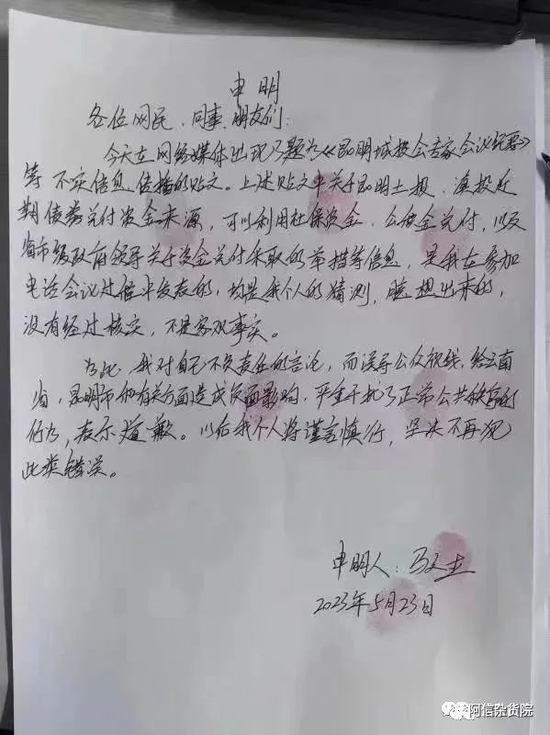 申明
各位网民、同事、朋友们：
今天在网络媒体出现了题为《昆明城投会专家会议纪要》
等不实信息传播的贴文。上述贴文中关于昆明土投、滇投近
期债券兑付资金来源，可以利用社保资金、公积金兑付，以及
省市级政府领导关于资金兑付采取的举措等信息，是我在参加
电话会议过程中发表的，均是我个人的猜测，臆想出来的，
没有经过核实，不是客观事实。
为此，我对自己不负责任的言论，而误导公众视线，给云南
省，昆明市和有关方面造成负面影响，严重干扰了正常公共秩序的
行为，表示道歉。以后我个人将谨言慎行，坚决不再犯
此类错误。
申明人：
2023年5月23日
阿信杂货院